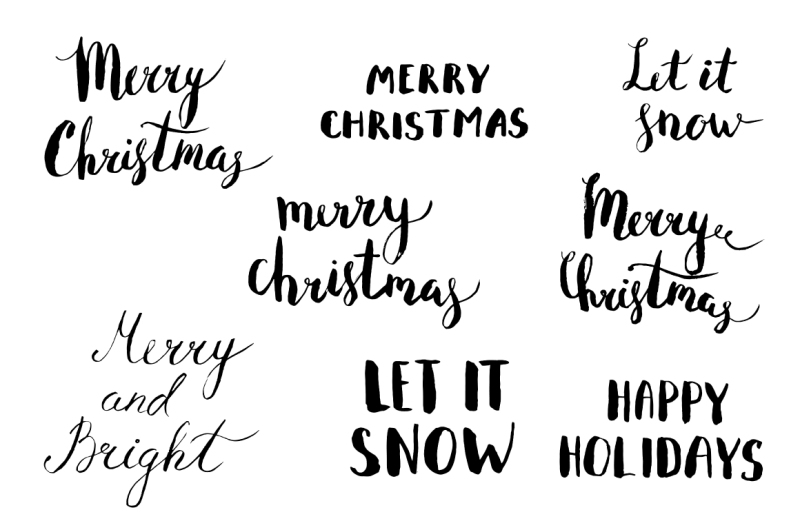 Merry
Christmas
MERRY
CHRISTMAS
Let it
snow
merry
christmas
Merry
Christmas
Merry
and
Bright
LET IT
SNOW
HAPPY
HOLIDAYS